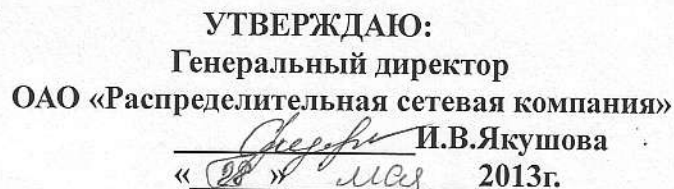 УТВЕРЖДАЮ:
Генеральный директор
ОАО «Распределительная сетевая компания»
И.В.Якушова
« 28 » мая 2013г.